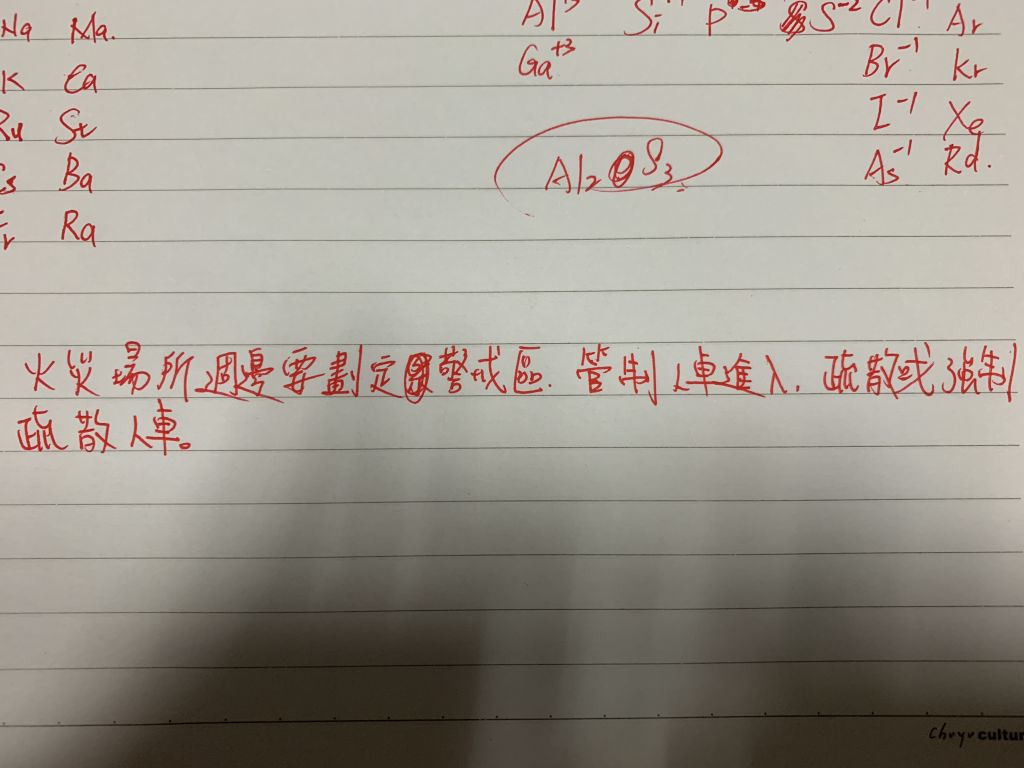 Na Ma. Al Si P S-2 Cl Ar
K Ca Ga+3 Br-1 Kr
St I-1 Xe
Ba Al2 S3 As-1 Rd.
Ra
火災場所週邊要劃定警戒區.管制人車進入.疏散或強制
疏散人車。
cultur